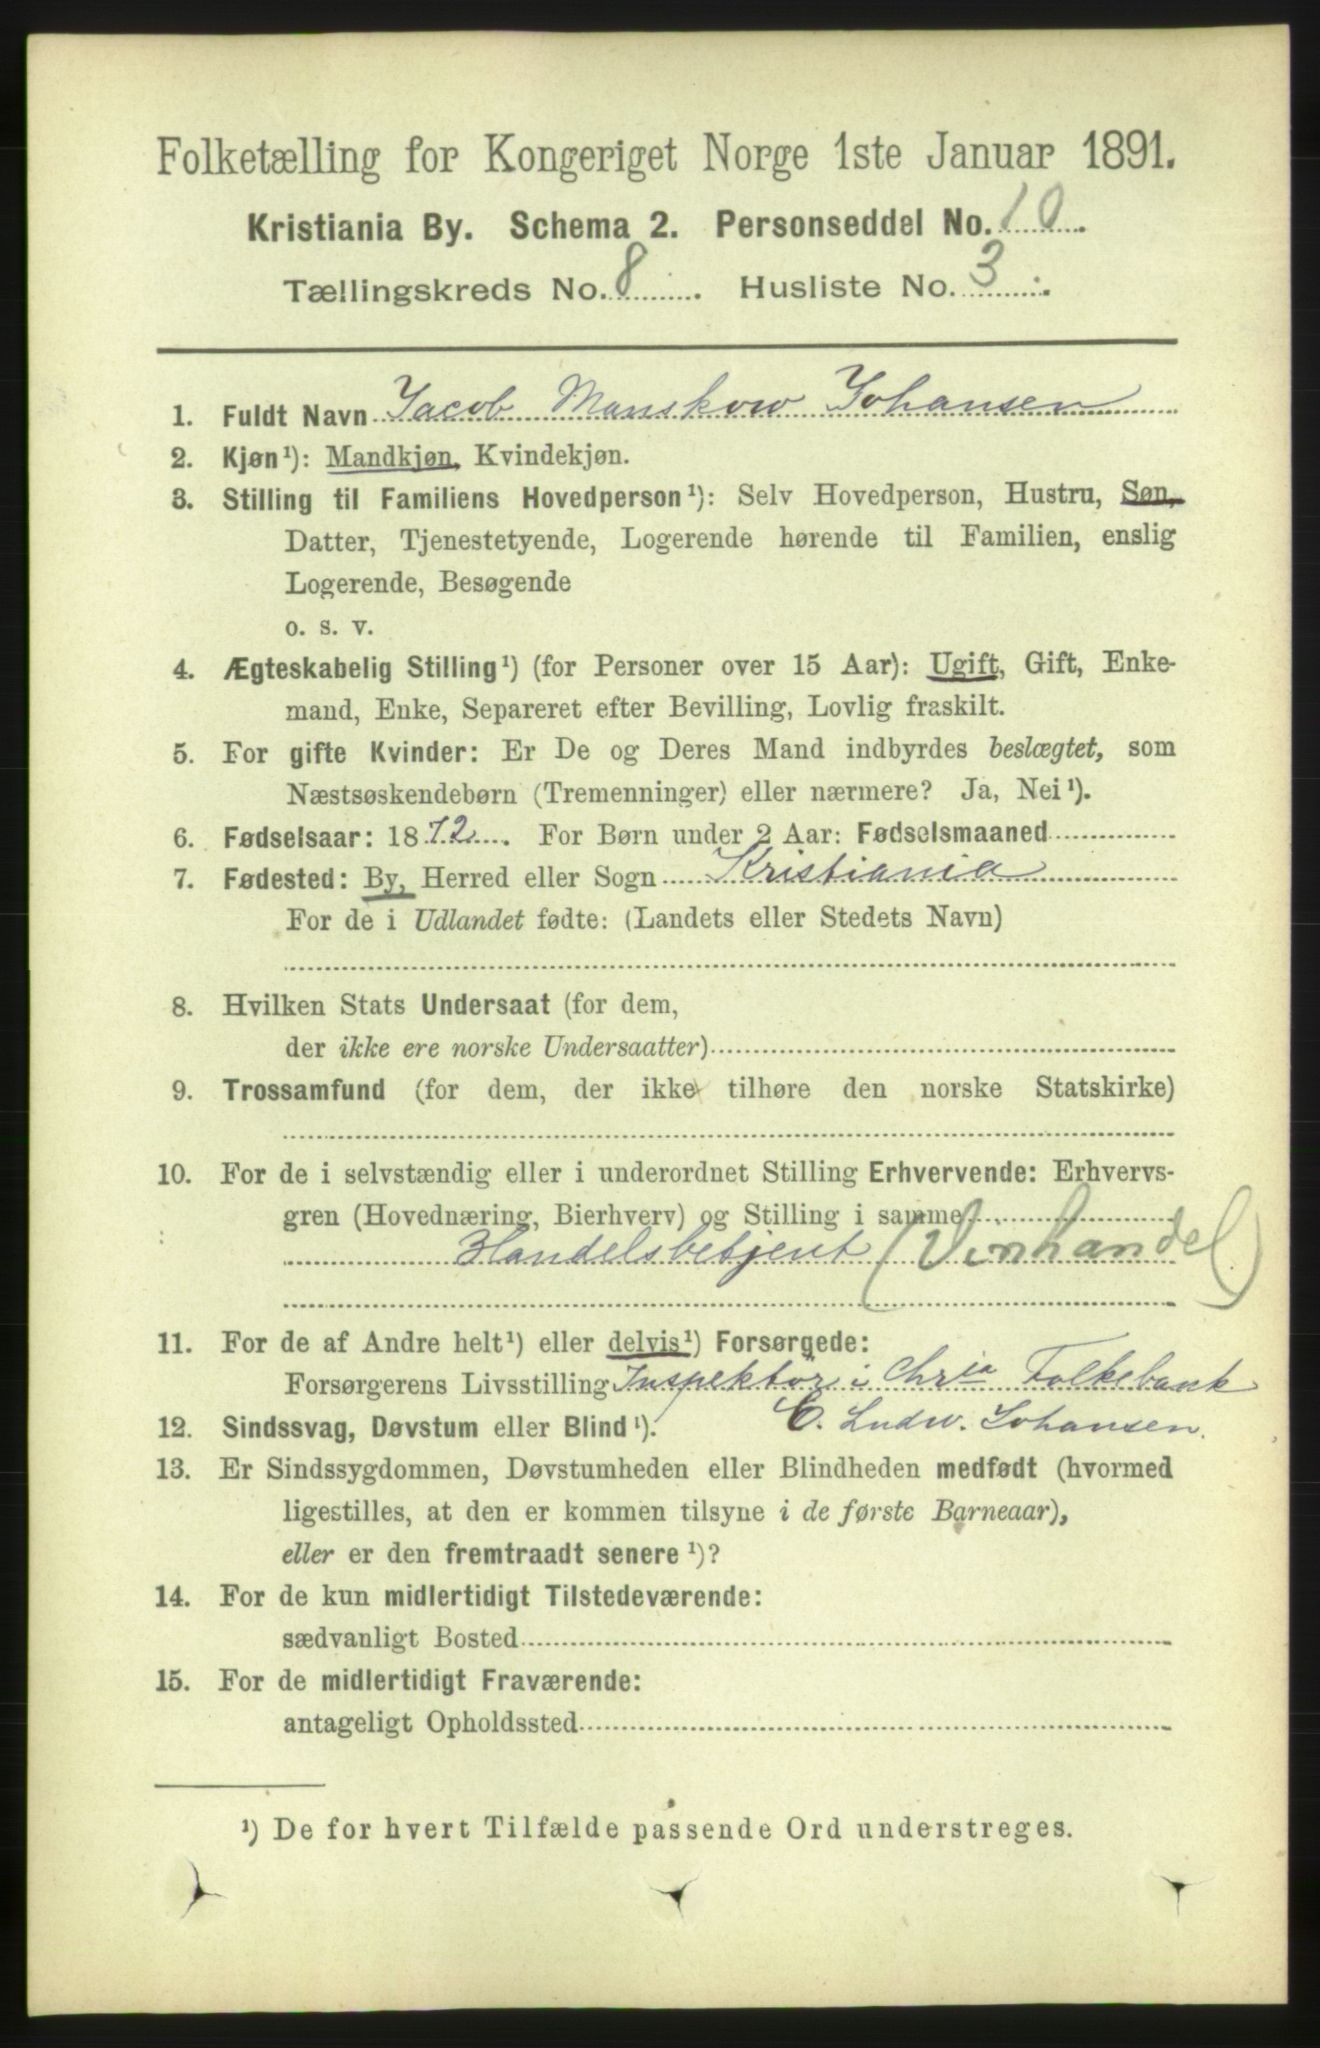 Folketælling for Kongeriget Norge 1ste Januar 1891.
Kristiania By. Schema 2. Personseddel No. 10.
Tællingskreds No. 8. Husliste No. 3.
1. Fuldt Navn Jacob Manskow Johansen
2. Kjøn¹): Mandkjøn, Kvindekjøn.
3. Stilling til Familiens Hovedperson¹): Selv Hovedperson, Hustru, Søn,
Datter, Tjenestetyende, Logerende hørende til Familien, enslig
Logerende, Besøgende
o. s. v.
4. Ægteskabelig Stilling¹) (for Personer over 15 Aar): Ugift, Gift, Enke-
mand, Enke, Separeret efter Bevilling, Lovlig fraskilt.
5. For gifte Kvinder: Er De og Deres Mand indbyrdes beslægtet, som
Næstsøskendebørn (Tremenninger) eller nærmere? Ja, Nei¹).
6. Fødselsaar: 1872. For Børn under 2 Aar: Fødselsmaaned
7. Fødested: By, Herred eller Sogn Kristiania
For de i Udlandet fødte: (Landets eller Stedets Navn)
8. Hvilken Stats Undersaat (for dem,
der ikke ere norske Undersaatter)
9. Trossamfund (for dem, der ikke tilhøre den norske Statskirke)
10. For de i selvstændig eller i underordnet Stilling Erhvervende: Erhvervs-
gren (Hovednæring, Bierhverv) og Stilling i samme
Handelsbetjent (Vinhandel)
11. For de af Andre helt¹) eller delvis¹) Forsørgede:
Forsørgerens Livsstilling Inspektör i Chria Folkebank
12. Sindssvag, Døvstum eller Blind¹). C. Ludw. Johansen.
13. Er Sindssygdommen, Døvstumheden eller Blindheden medfødt (hvormed
ligestilles, at den er kommen tilsyne i de første Barneaar),
eller er den fremtraadt senere¹)?
14. For de kun midlertidigt Tilstedeværende:
sædvanligt Bosted
15. For de midlertidigt Fraværende:
antageligt Opholdssted
¹) De for hvert Tilfælde passende Ord understreges.